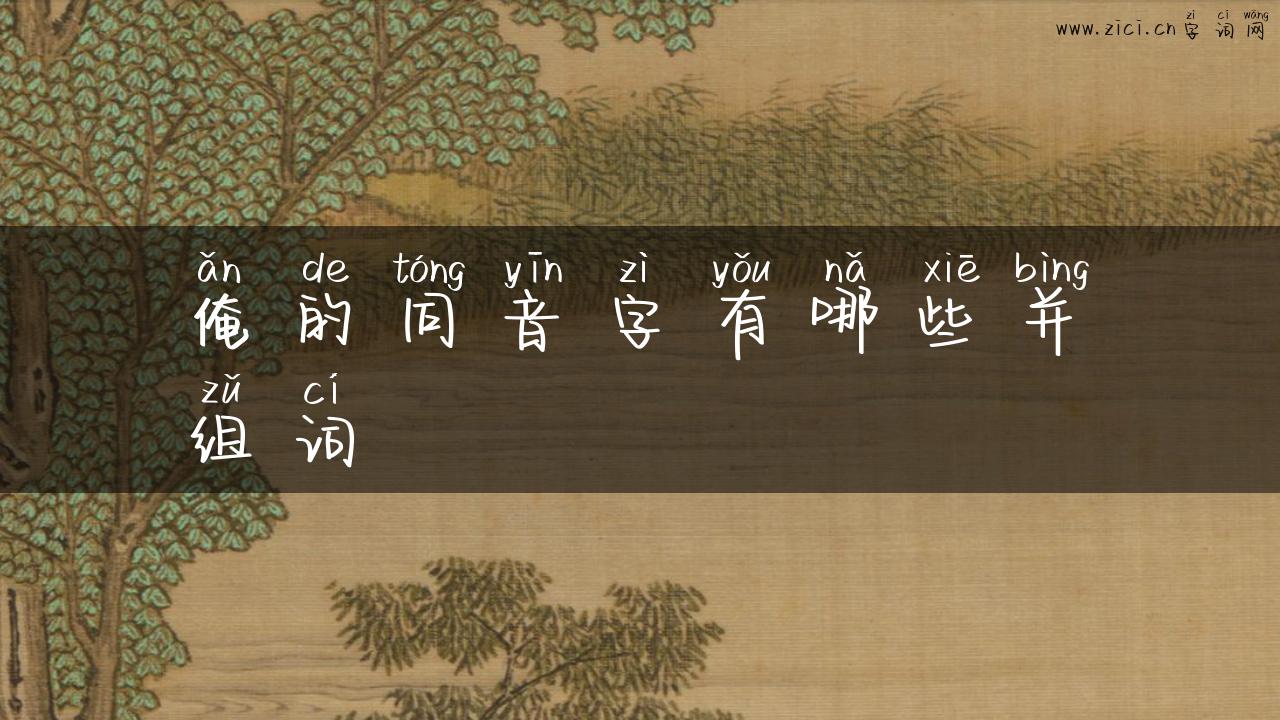 zì cí wǎng
www.zici.cn字词网
ǎn de tóng yīn zì yǒu nǎ xiē bìng
俺的同音字有哪些并
zǔ cí
组词